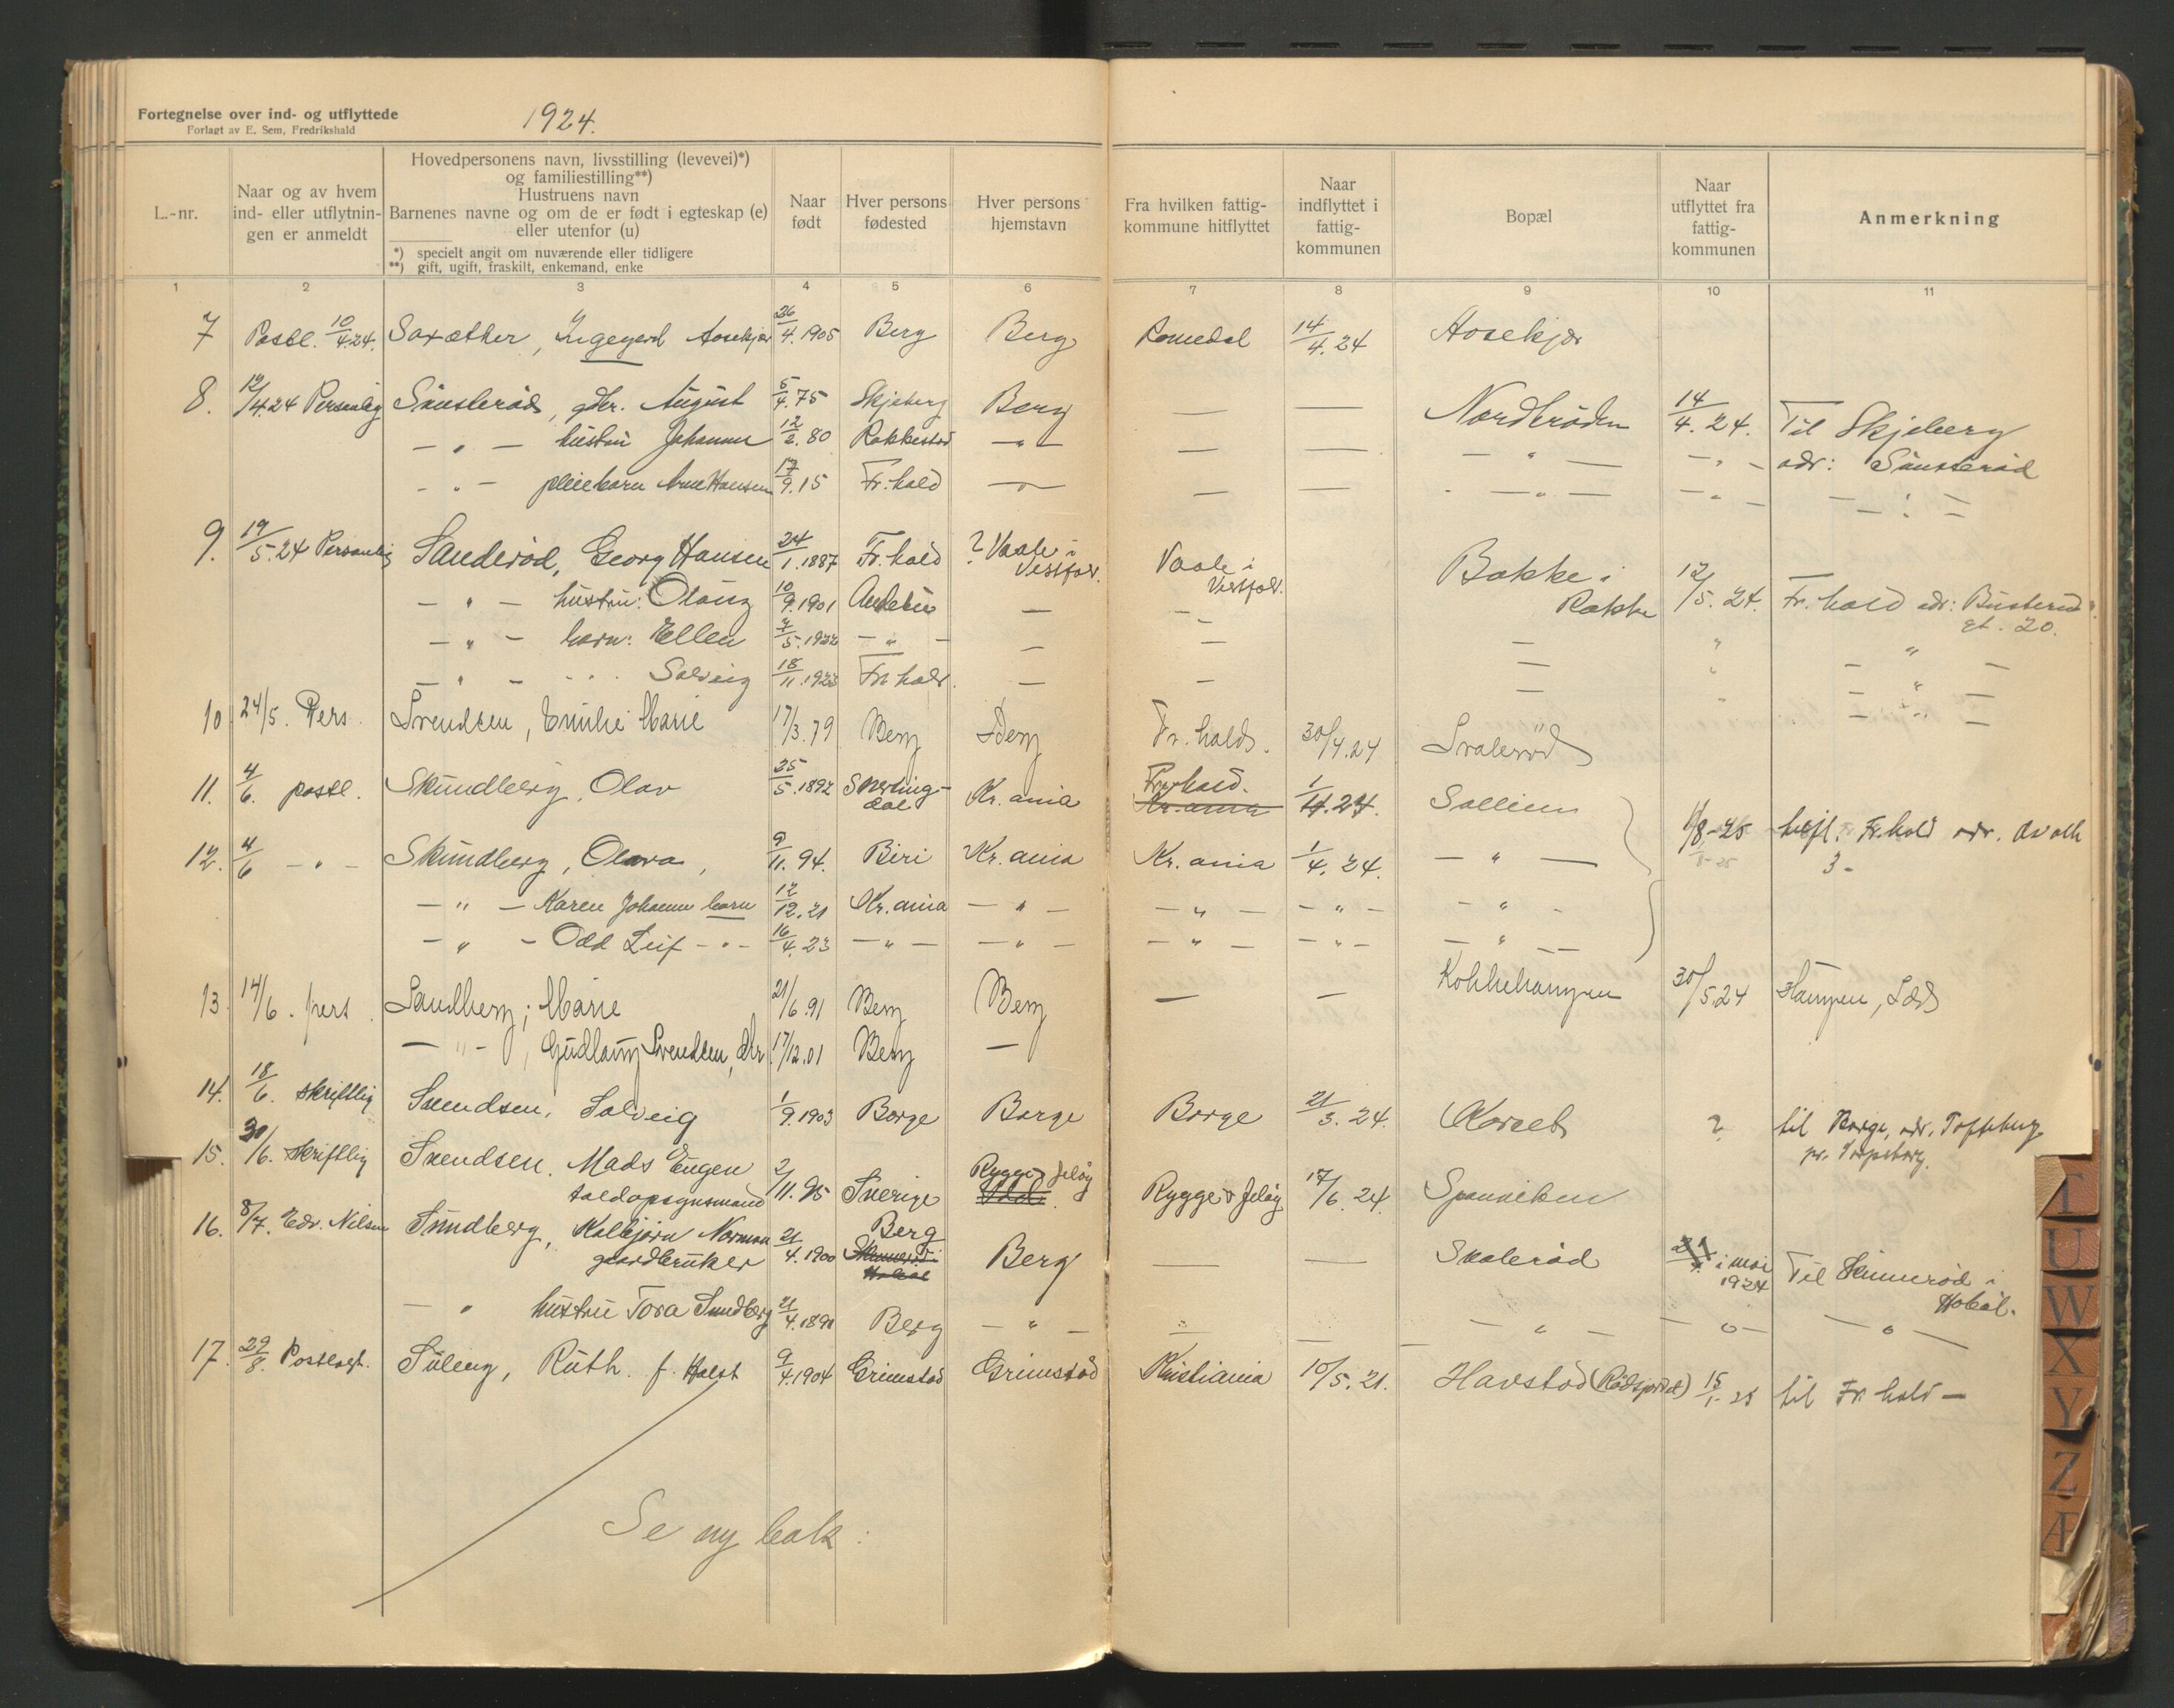 Fortegnelse over ind- og utflyttede
Forlagt av E. Sem, Fredrikshald
1924.
L.-nr.
Naar og av hvem
ind- eller utflytnin-
gen er anmeldt
Hovedpersonens navn, livsstilling (levevei)*)
og familiestilling**)
Hustruens navn
Barnenes navne og om de er født i egteskap (e)
eller utenfor (u)
*) specielt angit om nuværende eller tidligere
**) gift, ugift, fraskilt, enkemand, enke
Naar
født
Hver persons
fødested
Hver persons
hjemstavn
Fra hvilken fattig-
kommune hitflyttet
Naar
indflyttet i
fattig-
kommunen
Bopæl
Naar
utflyttet fra
fattig-
kommunen
Anmerkning
1 2 3 4 5 6 7 8 9 10 11
7 Postl. 10/4.24. Saxæther, Ingegerd Aosekjær 26/4.1905 Berg Berg Romedal 14/4.24 Aosekjær
8. 12/4.24 Personlig Sünsteröd, gbr. August 5/4.75 Skjeberg Berg — — Nordbröden 14/4.24. Til Skjeberg
— " — hustru Johanne 12/2.80 Rakkestad — " — — — — " — — " — adr: Sünsteröd
— " — pleiebarn Arne Hansen 17/9.15 Fr.hald — " — — — — " — — " — — " —
9. 19/5.24 Personlig Sanderöd, Georg Hansen 24/1.1887 Fr.hald ? Vaale i Vestfold. Vaale i Vestfold. Bakke i Rakke 12/5.24. Fr.hald adr: Busterud gt. 20.
— " — hustru: Olaug 10/9.1901 Andebu — —
— " — barn: Ellen 7/5.1922 — " — — — — " — " —
— " — " Solveig 18/11.1923 Fr.hald. — — — " — " —
10. 24/5. Pers. Svendsen, Emilie Marie 17/3.79 Berg Berg Fr.halds. 30/4.24 Svaleröd
11. 4/6. postl. Skundberg, Olav 25/5.1892 Snertingdal Kr.ania Fr.hald. Kr.ania 1/4.24. Sollien
12. 4/6 — " — Skundberg, Olava, 9/11.94. Biri Kr.ania Kr.ania 1/4.24. — " — 1/8-25 hitfl. Fr.hald adr. 3-
— " — Karen Johanne barn 12/12.21 Kr.ania — " — — " — — " — — " —
— " — Odd Leif — " — 16/4.23 — " — — " — — " — — " — — " —
13. 14/6. pers. Sandberg, Marie 21/6.91 Berg Berg — — Kokkehaugen 30/5.24 Haugen, Idd
— " —, Gudlaug Svendsen, dtr. 17/12.01 Berg —
14. 18/6. skriftlig Svendsen, Solveig 1/9.1903 Borge Borge Borge 21/3.24. Korset ? til Borge, adr. Toffeberg
pr. Sarpsborg.
15. 30/6. skriftlig Svendsen. Mads Eugen 2/11.95 Sverige Rygge & Jeløy Rygge & Jeløy 17/6.24. Sponviken
toldopsynsmand
16. 8/7. Edv. Nilsen Sundberg, Kolbjørn Norman 21/4.1900 Berg Berg — — Svaleröd i mai 1924 Til Skinneröd i
gaardbruker Hobøl.
— " hustru Tora Sundberg 21/4.1891 Berg — " — — " — — " — — " —
17. 29/8. Postlagt. Süleng, Ruth. f. Holst 9/4.1904 Grimstad Grimstad Kristiania 10/5.21. Havstod (Rødsjordet) 15/1-25 til Fr.hald —
Se ny bok:
T
U
W
X
Y
Z
Æ